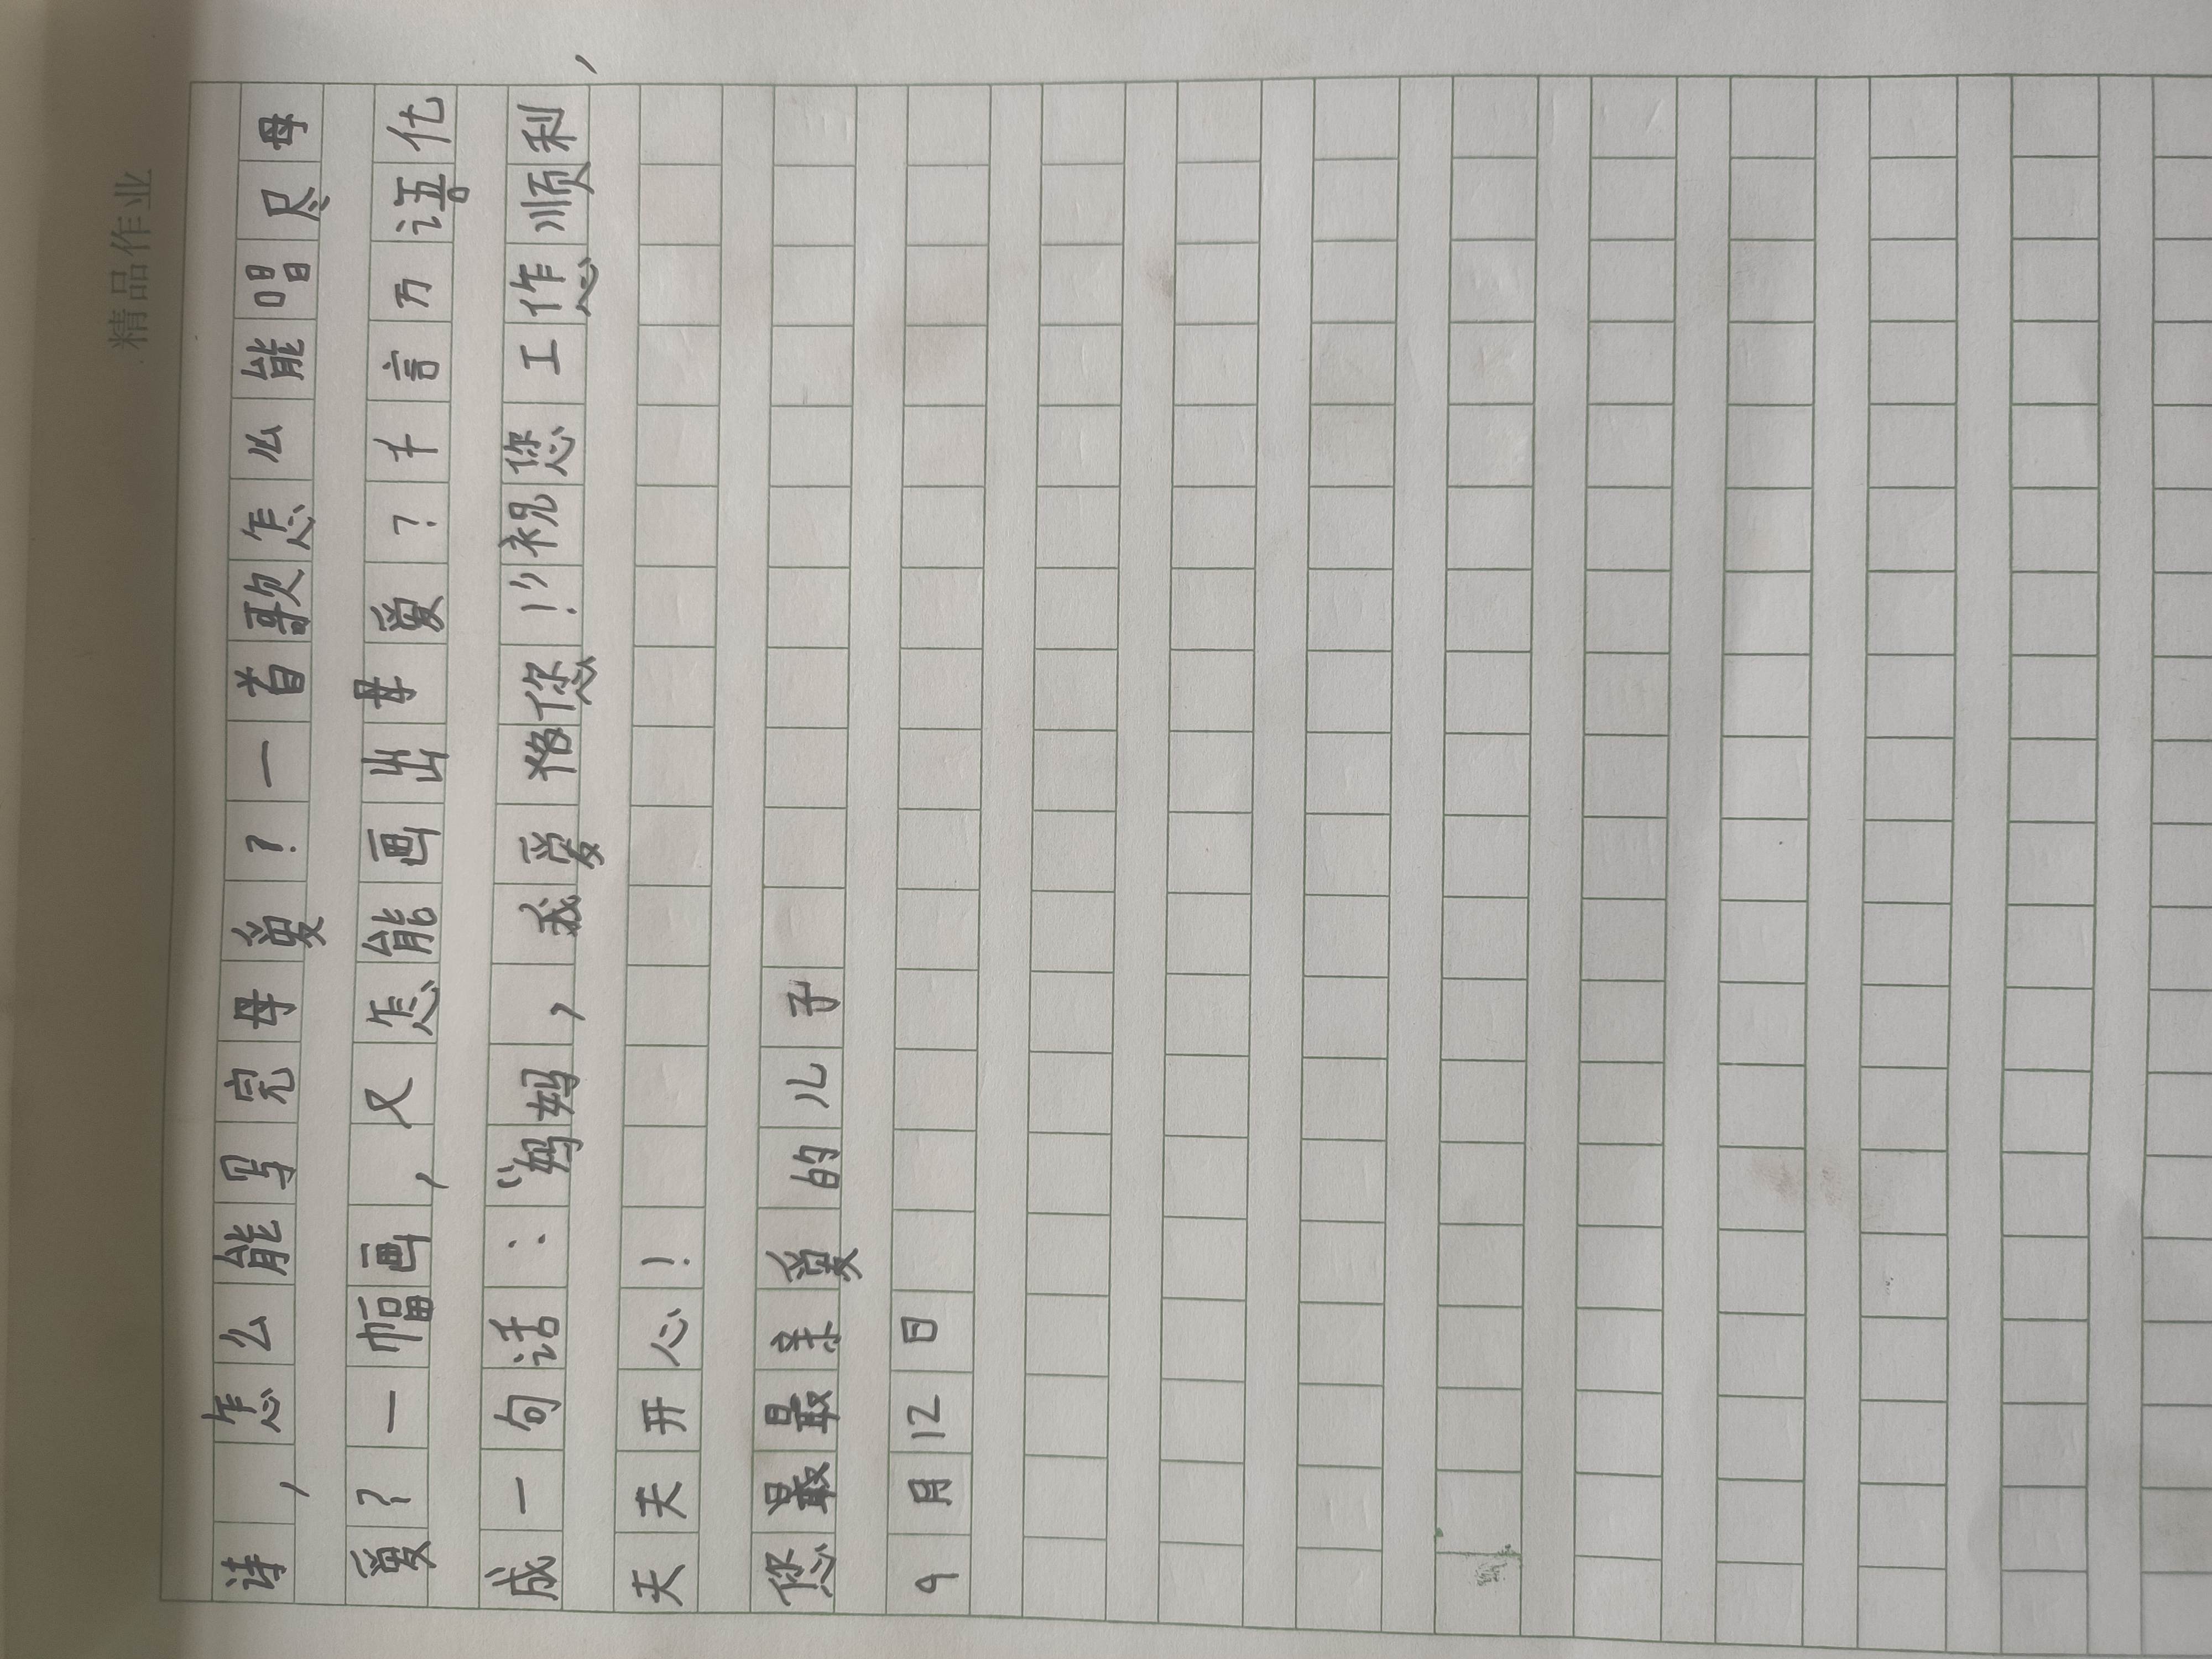 精品作业
诗，怎么能写完母爱？一首歌怎么能唱尽母
爱？一幅画，又怎能画出母爱？千言万语化
成一句话：“妈妈，我爱您！”祝您工作顺利，
天天开心！
您最最亲爱的儿子
9月12日